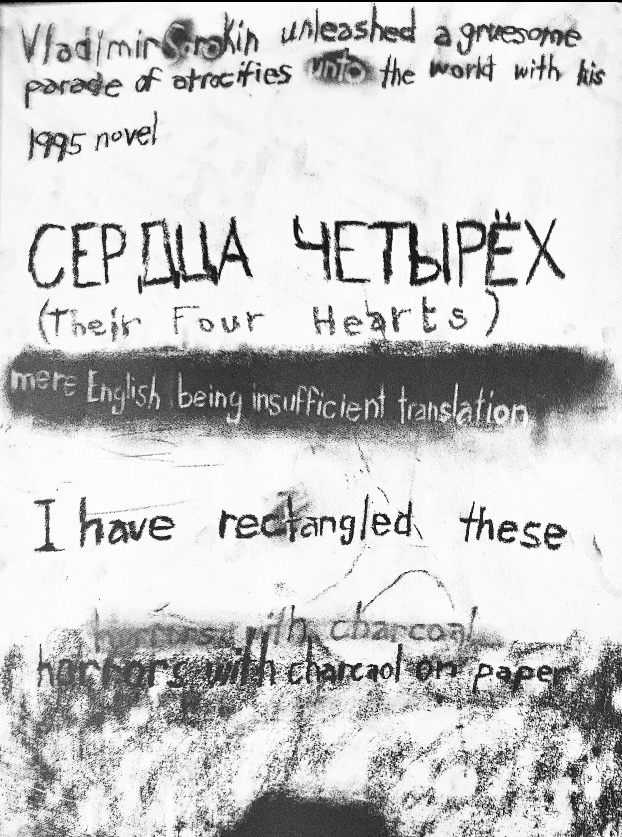 Vladimir Sorokin unleashed a gruesome
parade of atrocities unto the world with his
1995 novel
СЕРДЦА ЧЕТЫРЁХ
(Their Four Hearts)
mere English being insufficient translation
I have rectangled these
horrors with charcoal
horrors with charcaol on paper